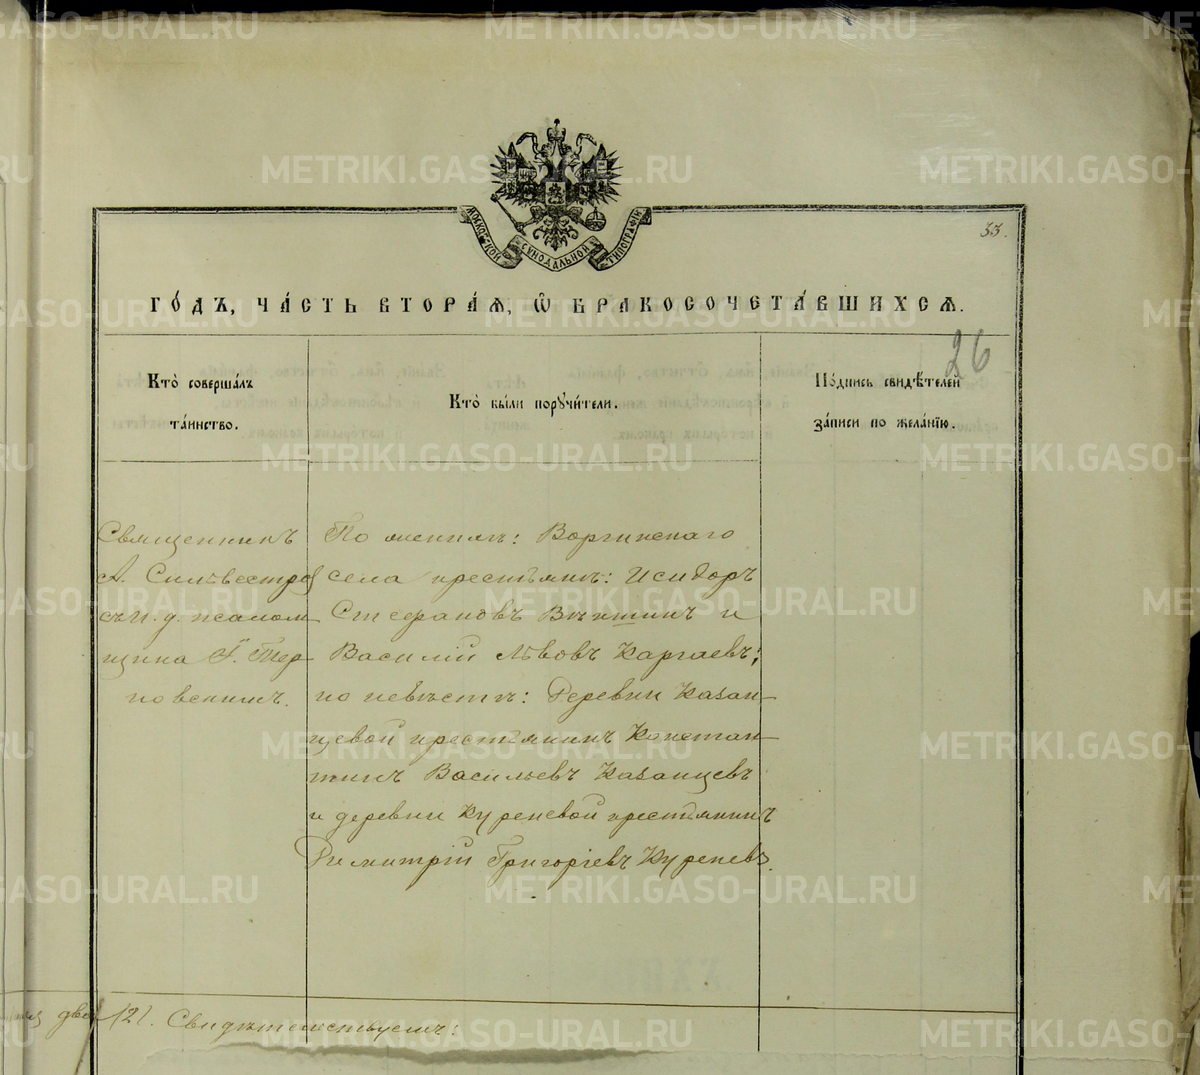 METRIKI.GASO-URAL.RU
МОСКОВСКОЙ СѴНОДАЛЬНОЙ ТИПОГРАФІИ
33.
ГО́ДЪ, ЧА́СТЬ ВТОРА́Ѧ, Ѽ БРАКОСОЧЕТА́ВШИХСѦ.
26
Кто̀ соверша́лъ
та́инство.
Кто̀ бы́ли порꙋчи́тели.
По́дпись свидѣ́телей
за́писи по жела́нїю.
Священникъ
А. Сильвестров
съ и. д. псалом-
щика Г. Тер-
новскимъ.
По женихѣ: Воргинскаго
села крестьяне: Исидоръ
Стефановъ Вяткинъ и
Василій Львовъ Каргаевъ;
по невѣстѣ: Деревни Казан-
цевой крестьянинъ Констан-
тинъ Васильевъ Казанцевъ
и деревни Куреневой крестьянинъ
Димитрій Григоріевъ Куреневъ.
два /2/. Свидѣтельствуемъ: